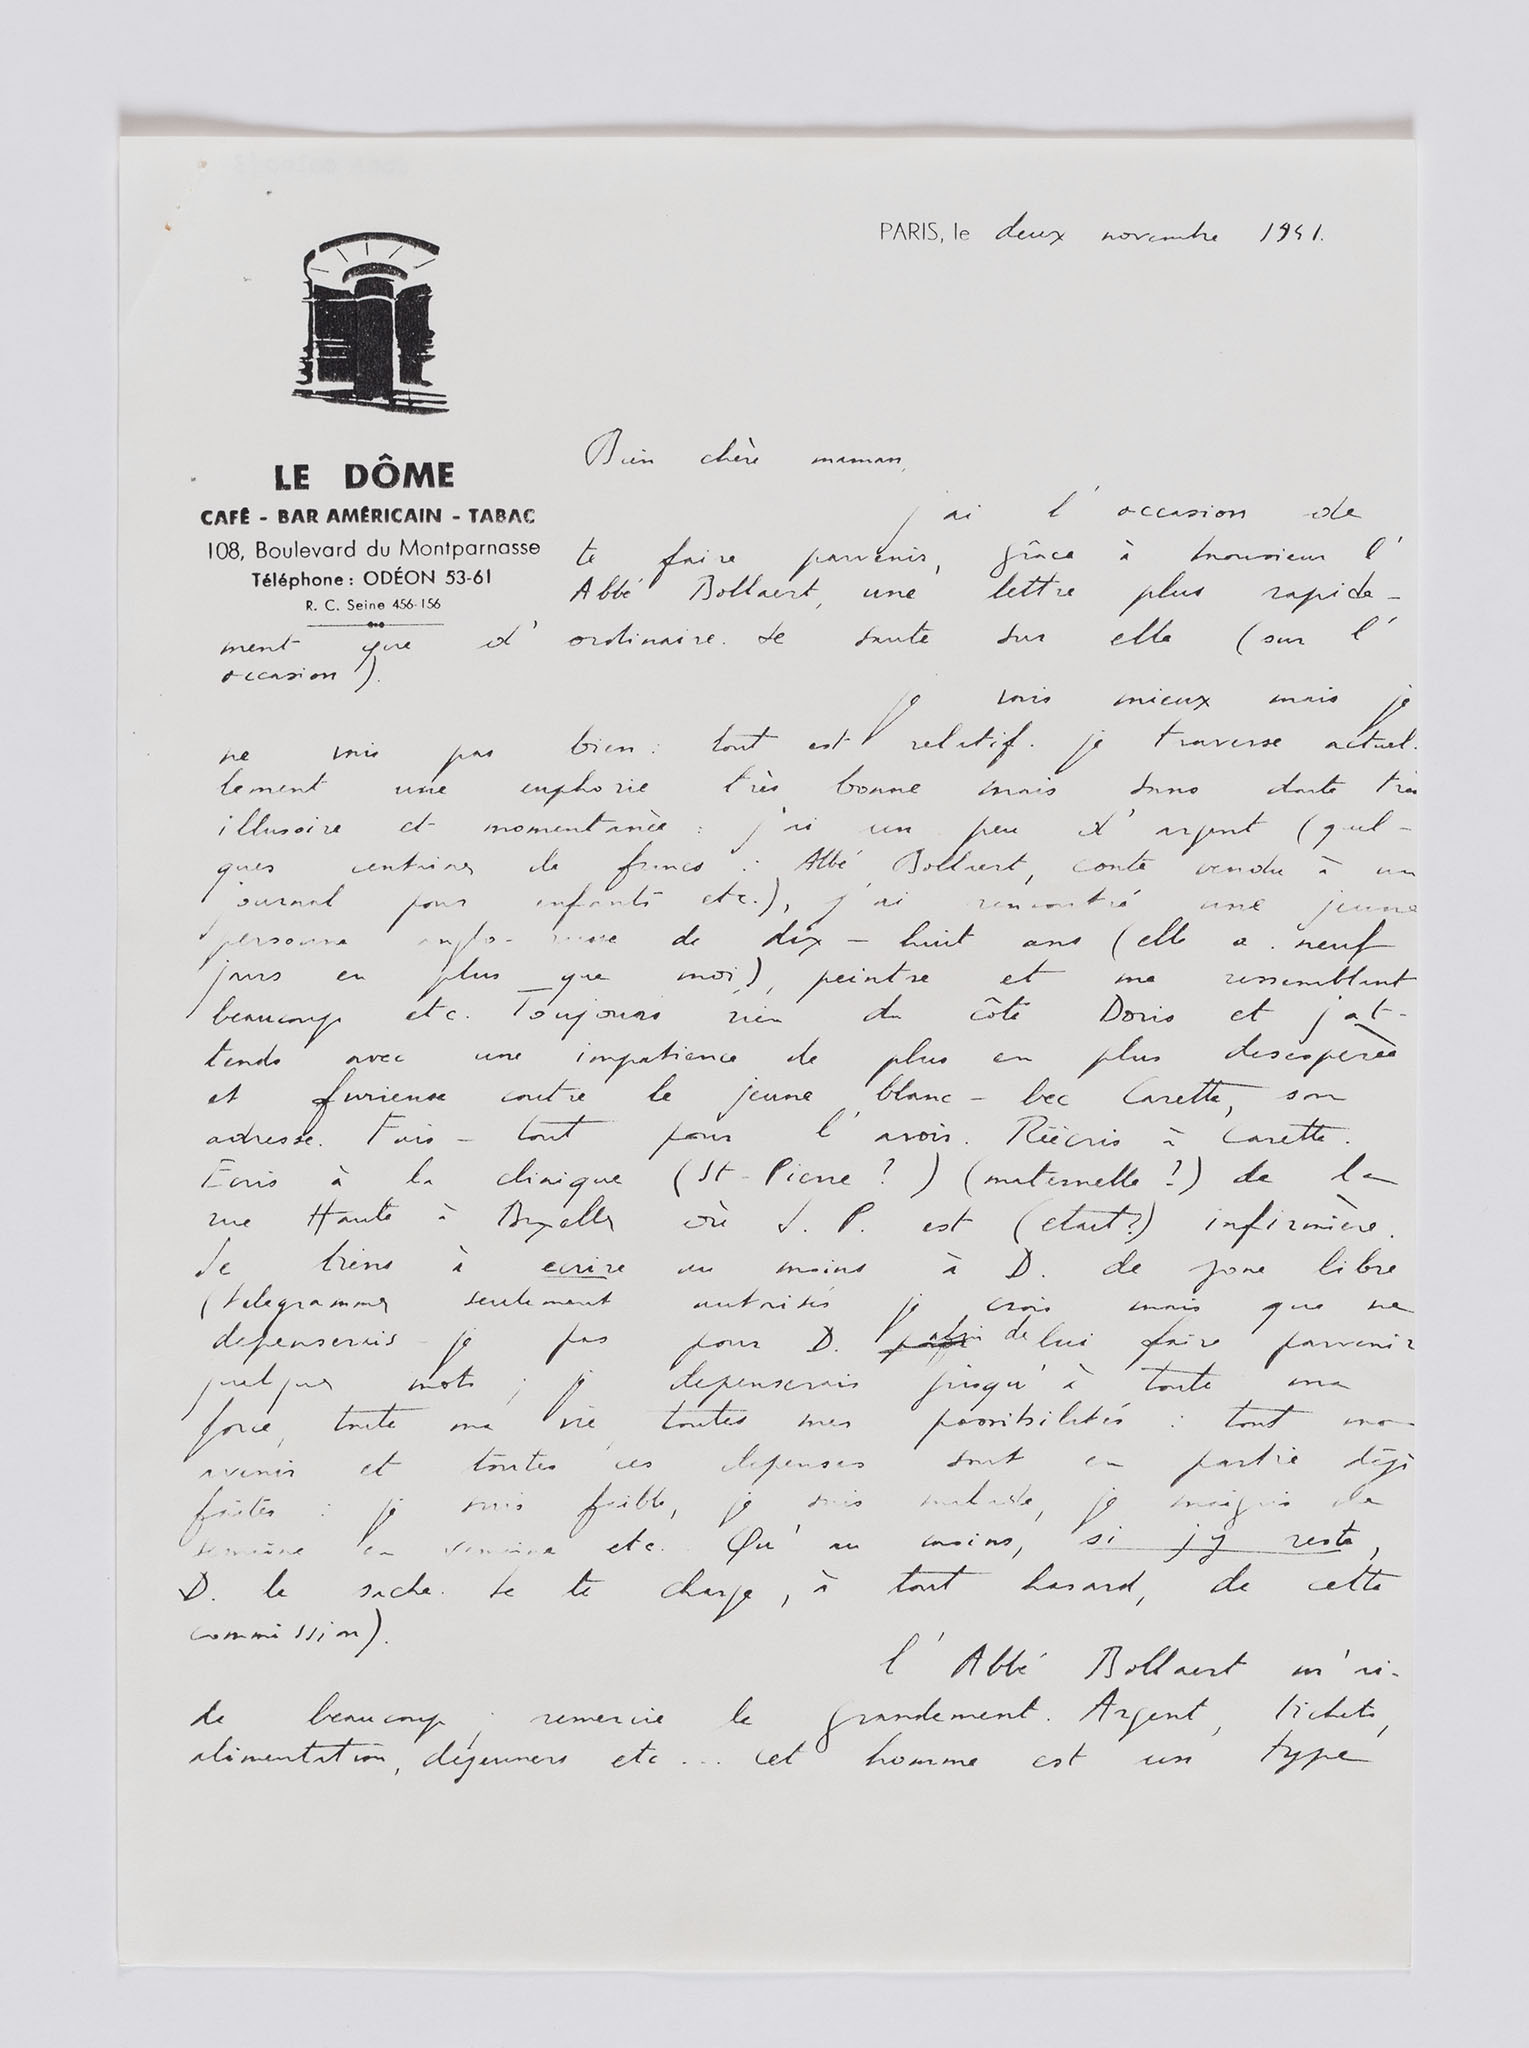 PARIS, le deux novembre 1941.
LE DÔME
CAFÉ - BAR AMÉRICAIN - TABAC
108, Boulevard du Montparnasse
Téléphone : ODÉON 53-61
R. C. Seine 456-156
Bien chère maman,
j'ai l'occasion de
te faire parvenir, grâce à monsieur l'
Abbé Bollaert, une lettre plus rapide-
ment que d'ordinaire. Je saute sur elle (sur l'
occasion).
je vais mieux mais je
ne vais pas bien : tout est relatif. je traverse actuel-
lement une euphorie très bonne mais sans doute très
illusoire et momentanée : j'ai un peu d'argent (quel-
ques centaines de francs : Abbé Bollaert, conte vendu à un
journal pour enfants etc.), j'ai rencontré une jeune
personne anglo-russe de dix-huit ans (elle a neuf
jours en plus que moi), peintre et me ressemblant
beaucoup etc. Toujours rien du côté Doris et j'at-
tends avec une impatience de plus en plus desesperée
et furieuse contre le jeune blanc-bec Carette, son
adresse. Fais-tout pour l'avoir. Réécris à Carette.
Ecris à la clinique (St-Pierre ?) (maternelle ?) de la
rue Haute à Bruxelles où S. P. est (etait ?) infirmière.
Je tiens à ecrire au moins à D. de zone libre
(telegrammes seulement autorisés je crois mais que ne
depenserais-je pas pour D. afin de lui faire parvenir
quelques mots ; je depenserais jusqu'à toute ma
force, toute ma vie, toutes mes possibilités : tout mon
avenir et toutes ces depenses sont en partie déjà
faites : je suis faible, je suis malade, je maigris de
semaine en semaine etc. Qu'au moins, si j'y reste,
D. le sache. Je te charge, à tout hasard, de cette
commission).
l'Abbé Bollaert m'ai-
de beaucoup ; remercie le grandement. Argent, tickets,
alimentation, déjeuners etc... cet homme est un type